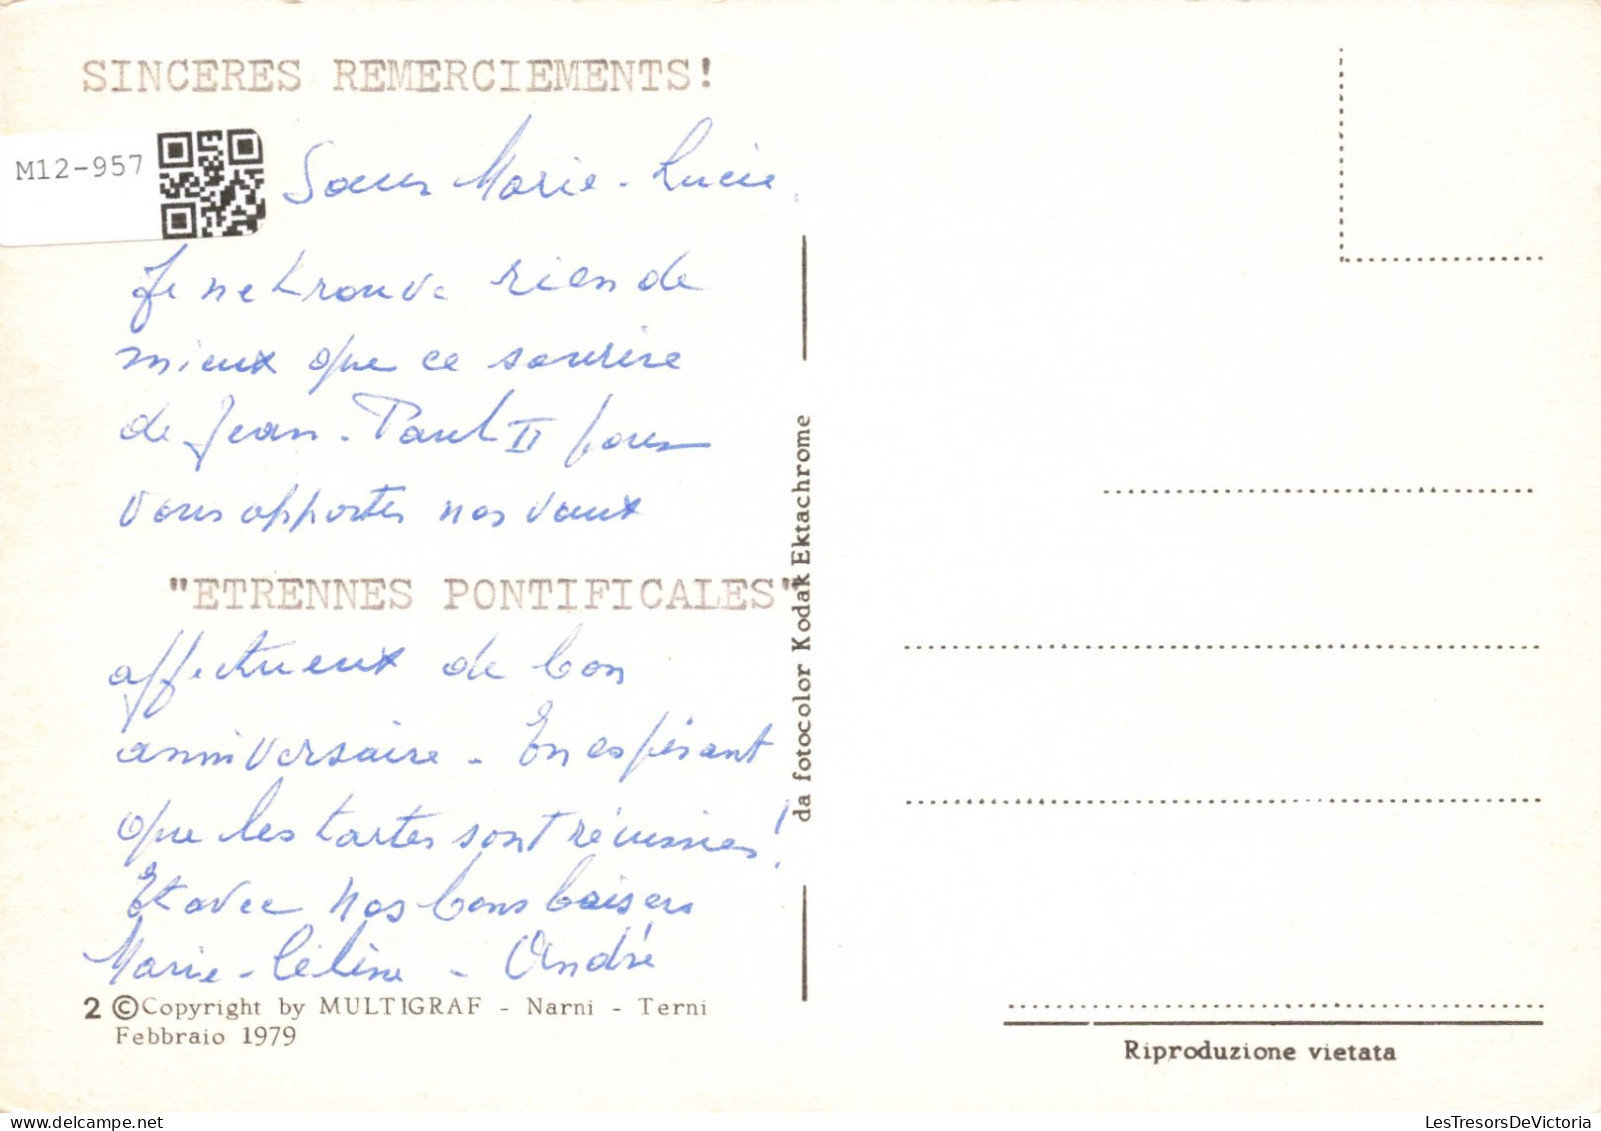 SINCERES REMERCIEMENTS!
M12-957
Soeur Marie-Lucie,
Je ne trouve rien de
mieux que ce sourire
de Jean-Paul II pour
vous apporter nos vœux
"ETRENNES PONTIFICALES"
affectueux de bon
anniversaire - En espérant
que les tartes sont réussies !
Et avec nos bons baisers
Marie-Céline - André
2 © Copyright by MULTIGRAF - Narni - Terni
Febbraio 1979
da fotocolor Kodak Ektachrome
Riproduzione vietata
LesTresorsDeVictoria